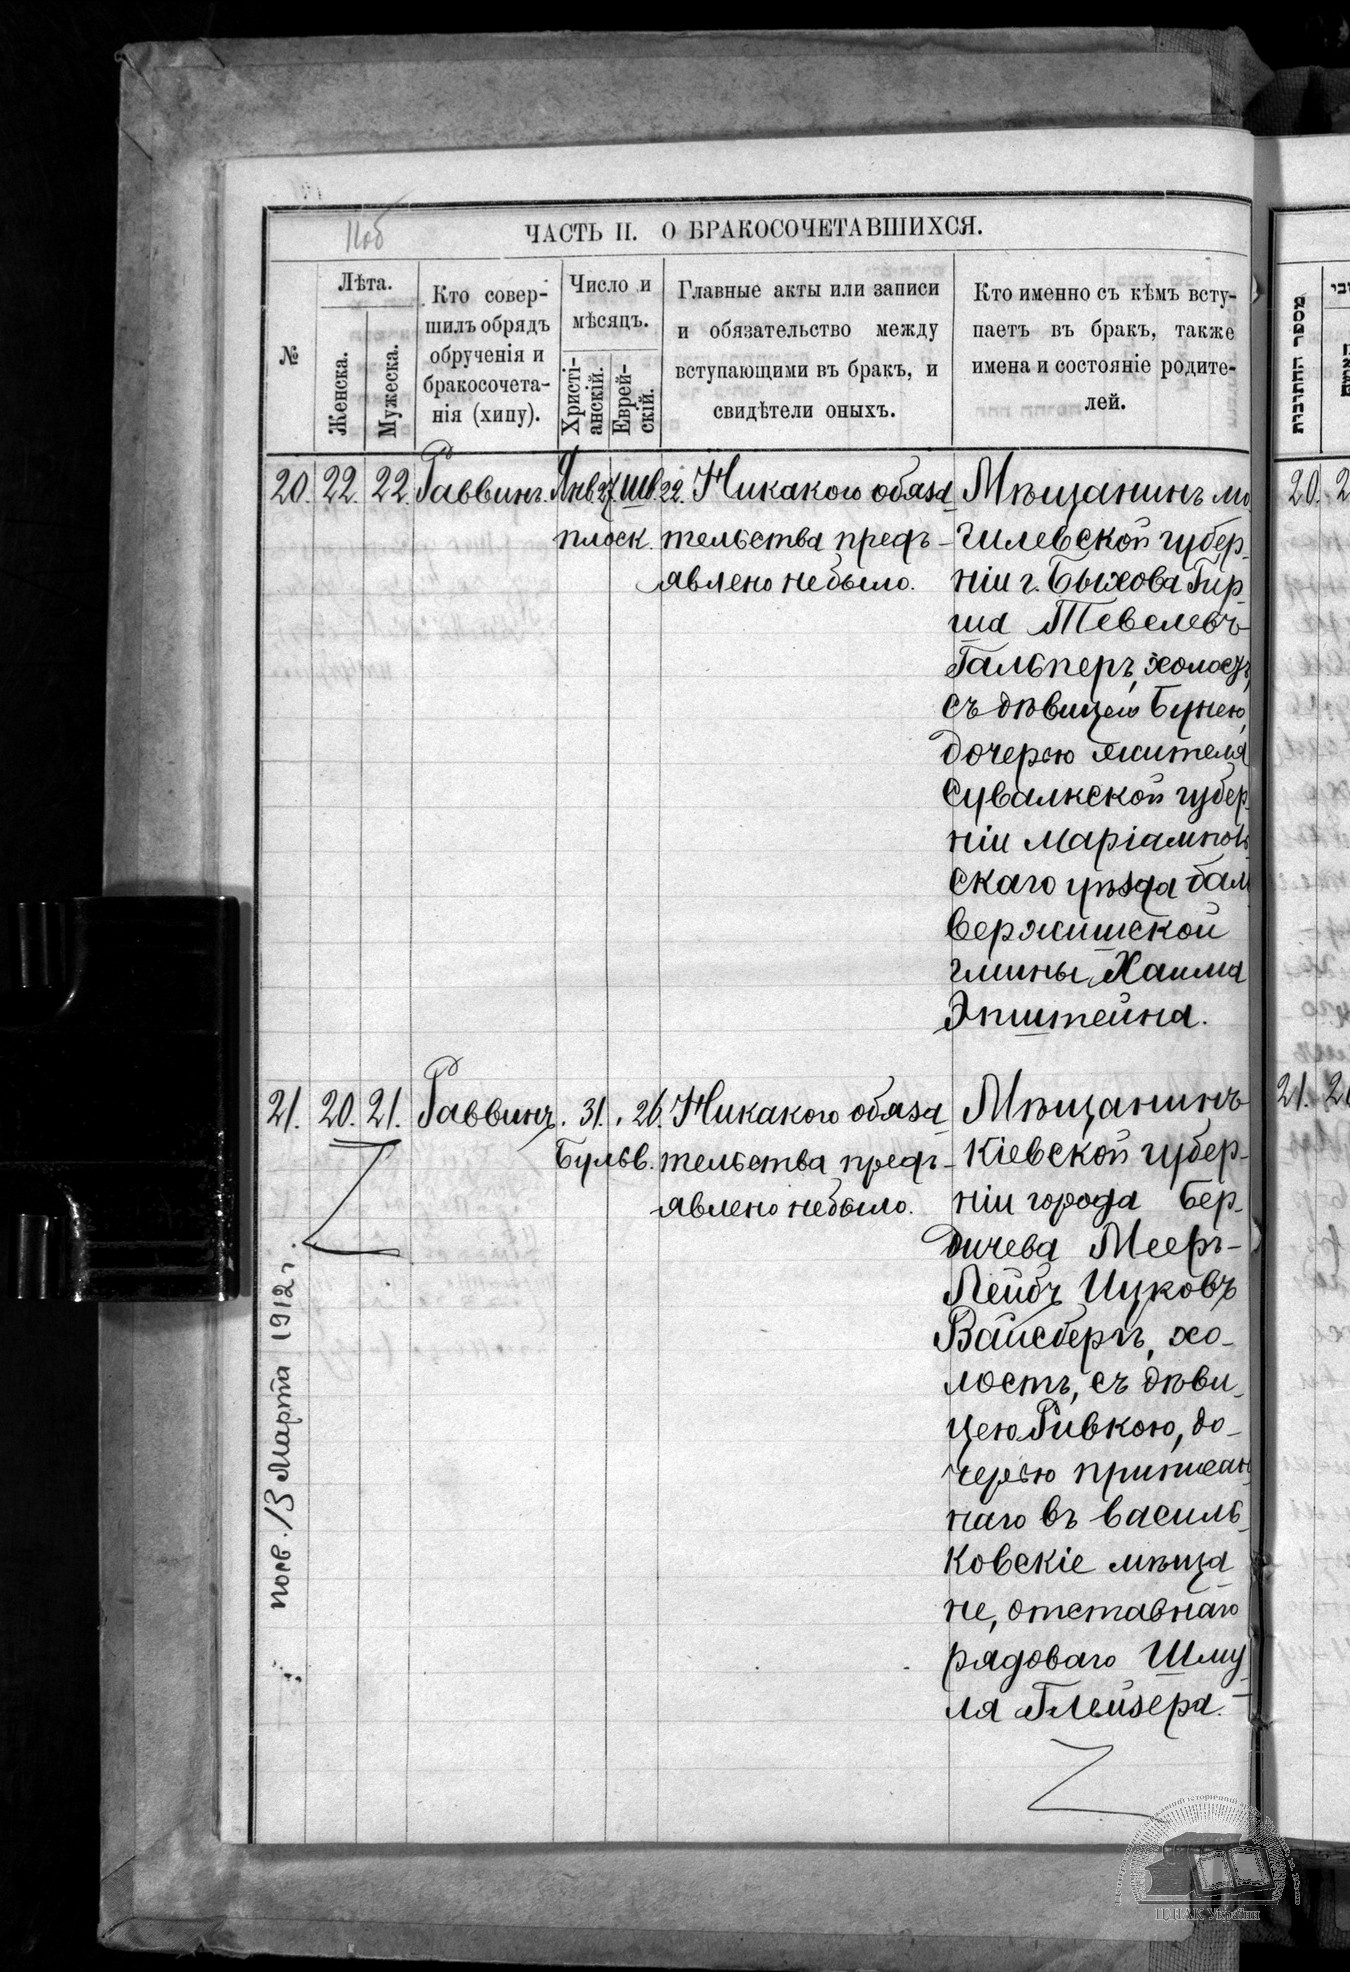 11об
ЧАСТЬ II. О БРАКОСОЧЕТАВШИХСЯ.
№
Лѣта.
Женска.
Мужеска.
Кто совер-
шилъ обрядъ
обрученія и
бракосочета-
нія (хипу).
Число и
мѣсяцъ.
Христі-
анскій.
Еврей-
скій.
Главные акты или записи
и обязательство между
вступающими въ бракъ, и
свидѣтели оныхъ.
Кто именно съ кѣмъ всту-
паетъ въ бракъ, также
имена и состояніе родите-
лей.
20. 22. 22. Раввинъ. Янв. 27 Шв. 22. Никакого обяза-
плоск. тельства предъ-
явлено небыло.
Мѣщанинъ мо
гилевской губер-
ніи г. Быхова Гир
ша Тевелевъ
Гальперъ, холостъ,
съ дѣвицею Бунею,
дочерью жителя
Сувалкской губер
ніи Маріампољ
скаго уѣзда Бал
вержишской
гмины, Хаима
Эпштейна.
21. 20. 21. Раввинъ. 31. 26. Никакого обяза
Бульв. тельства предъ-
явлено небыло.
Мѣщанинъ
Кіевской губер-
ніи города Бер-
дичева Мееръ-
Лейбъ Ицковъ
Вайсбергъ, хо-
лостъ, съ дѣви-
цею Ривкою, до-
черью приписан
наго въ Василь-
ковскіе мѣща
не, отставнаго
рядоваго Шму
ля Глейзера.
13 Марта 1912 г.
מספר החתונות
20.
21.
ЦДІАК України